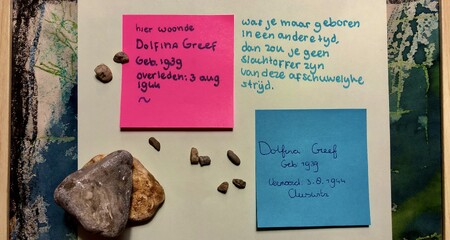 hier woonde
Dolfina Greef
Geb 1939
overleden: 3 aug
1944
~
was je maar geboren
in een andere tijd,
dan zou je geen
slachtoffer zyn
van deze afschuwelyke
strijd.
Dolfina Greef
Geb 1939
Vermoord: 3.8.1944